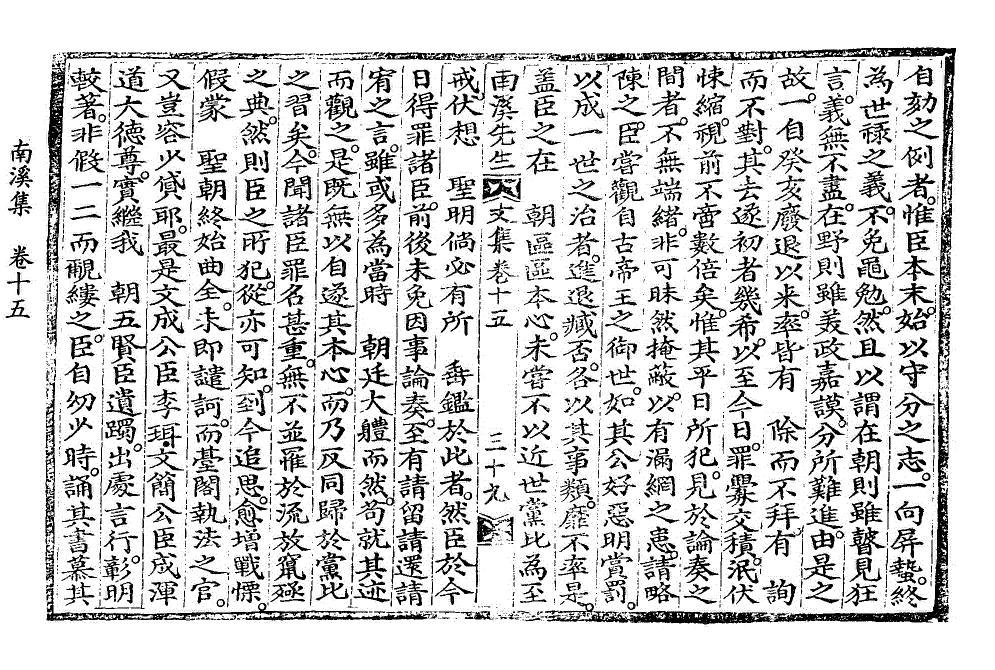 自劾之例者。惟臣本末。始以守分之志。一向屛蟄。終
為世祿之義。不免黽勉。然且以謂在朝則雖瞽見狂
言。義無不盡。在野則雖美政嘉謨。分所難進。由是之
故。一自癸亥廢退以來。率皆有　除而不拜。有　詢
而不對。其去遂初者幾希。以至今日。罪釁交積。泯伏
悚縮。視前不啻數倍矣。惟其平日所犯。見於論奏之
間者。不無端緖。非可昧然掩蔽。以有漏網之患。請略
陳之。臣嘗觀自古帝王之御世。如其公好惡明賞罰。
以成一世之治者。進退臧否。各以其事類。靡不率是。
盖臣之在　朝區區本心。未嘗不以近世黨比為至
南溪先生文集卷十五　三十九
戒。伏想　聖明倘必有所　垂鑑於此者。然臣於今
日得罪諸臣。前後未免因事論奏。至有請留請還請
宥之言。雖或多為當時　朝廷大軆而然。苟就其迹
而觀之。是旣無以自遂其本心。而乃反同歸於黨比
之習矣。今聞諸臣罪名甚重。無不並罹於流放竄殛
之典。然則臣之所犯。從亦可知。到今追思。愈增戰慄。
假蒙　聖朝終始曲全。未即譴訶。而臺閣執法之官。
又豈容少貸耶。最是文成公臣李珥，文簡公臣成渾
道大德尊。實繼我　朝五賢臣遺躅。出處言行。彰明
較著。非假一二而覼縷之。臣自幼少時。誦其書慕其
南溪集　卷十五